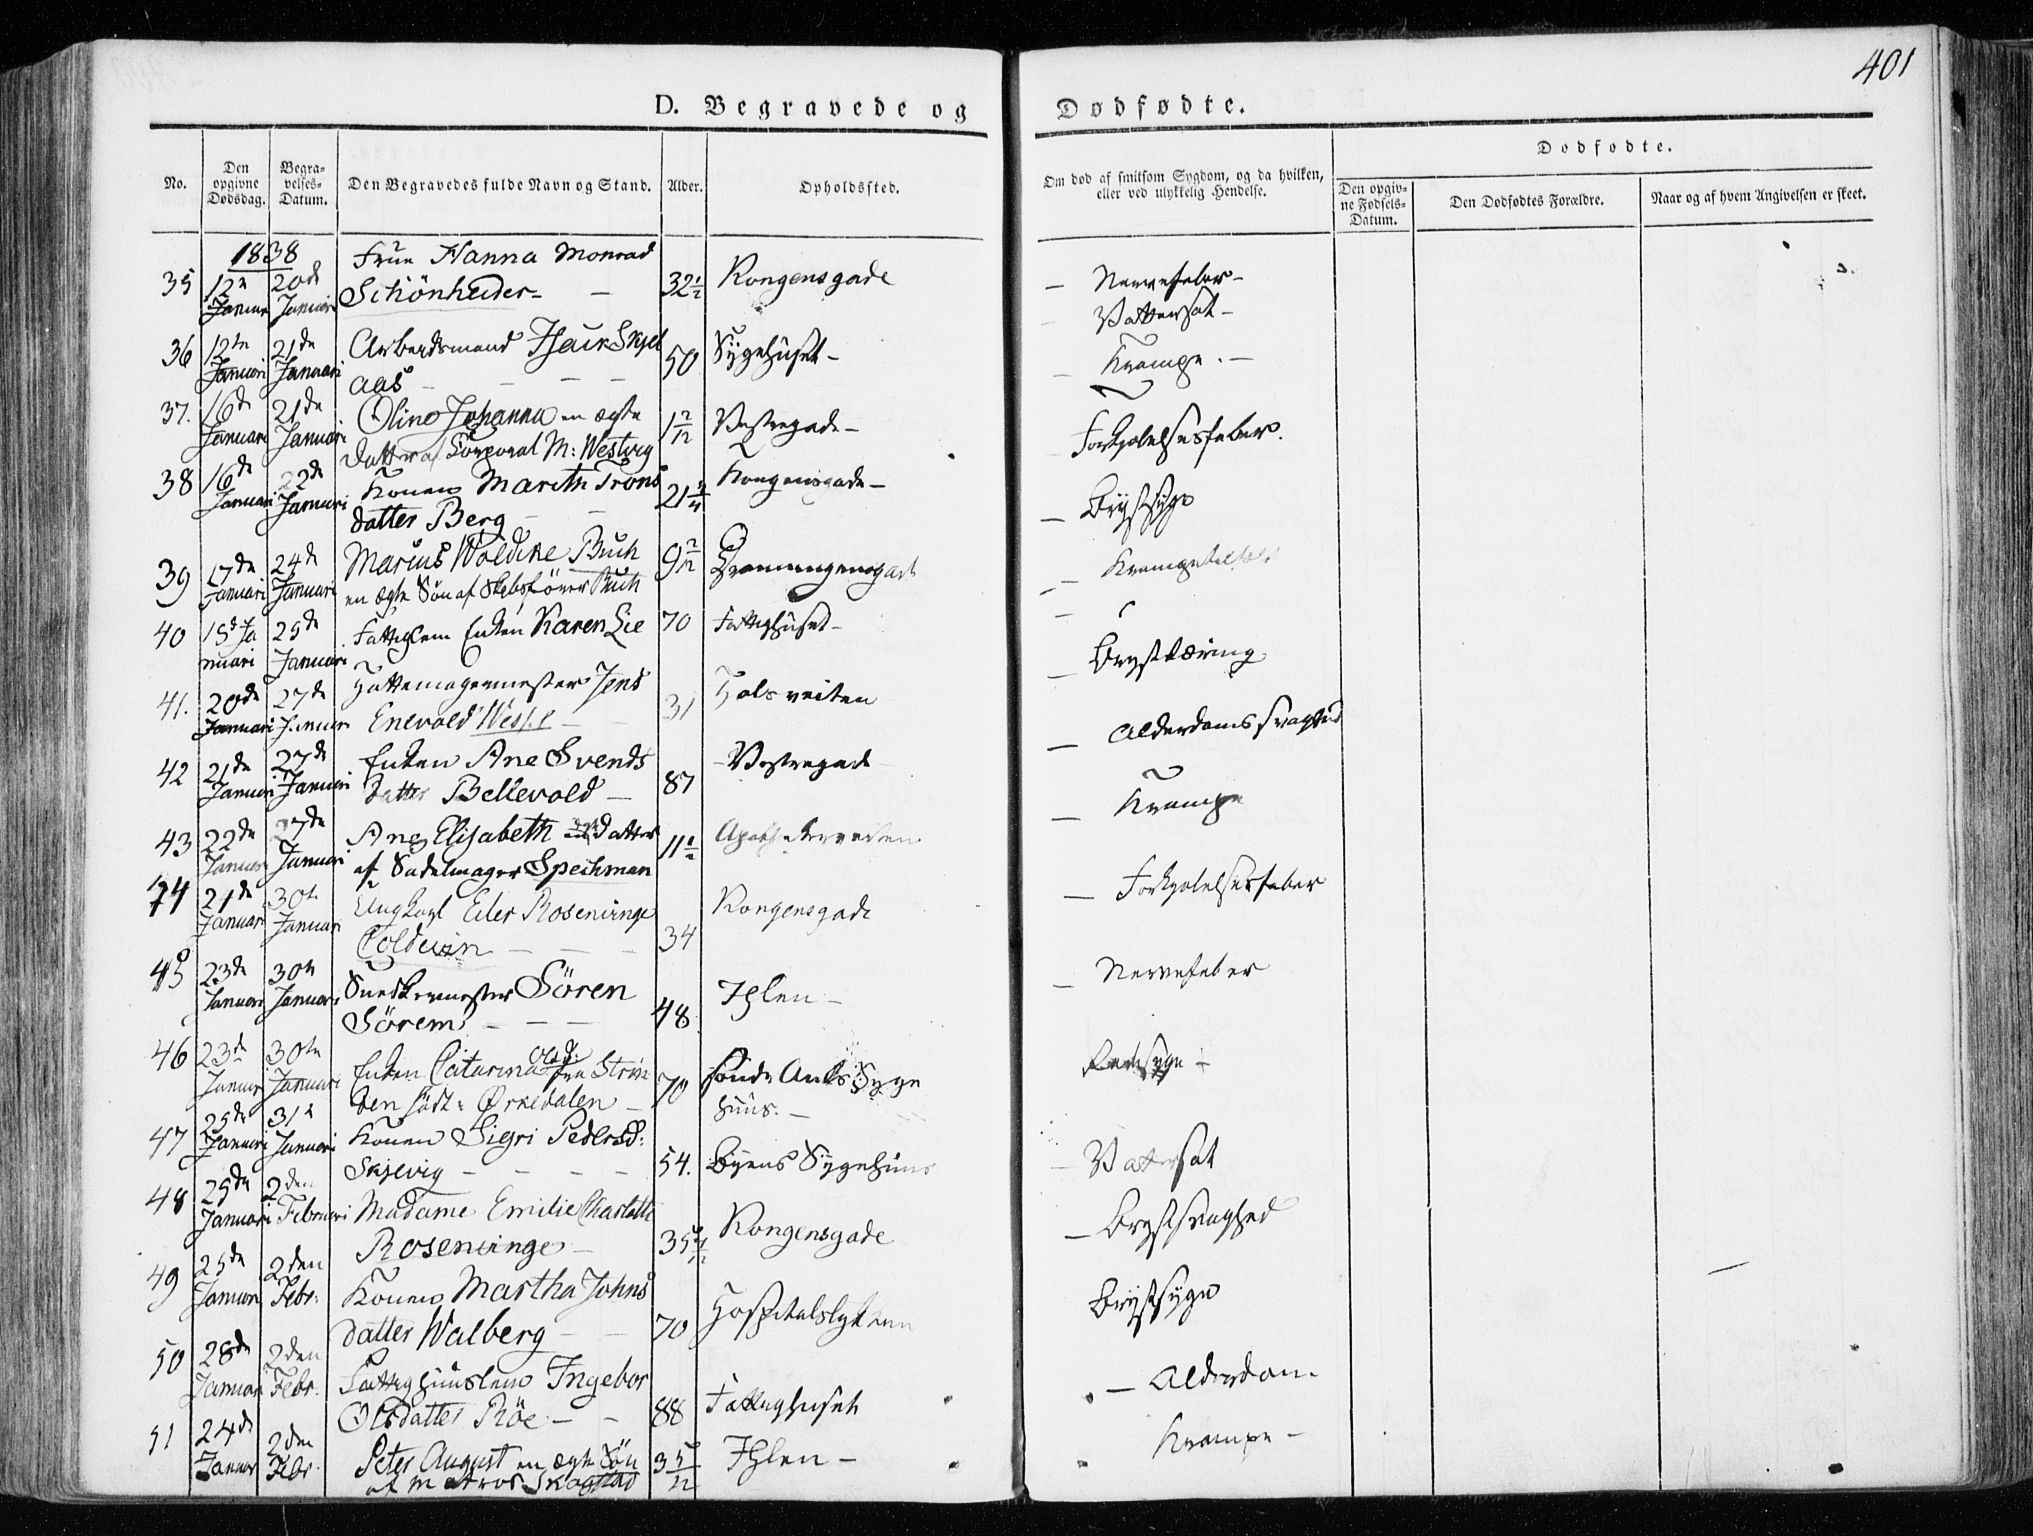 401
D. Begravede og Dødfødte.
No.
Den opgivne Dødsdag.
Begra-velses-Datum.
Den Begravedes fulde Navn og Stand.
Alder.
Opholdssted.
Om død af smitsom Sygdom, og da hvilken, eller ved ulykkelig Hendelse.
Dødfødte.
Den opgiv-ne Fødsels-Datum.
Den Dødfødtes Forældre.
Naar og af hvem Angivelsen er skeet.
1838
35 12te Januar 20de Januari Frue Hanna Monrad
Schönheider 32 1/2 Kongensgade Nervefeber
Vattersot
36 12te Januari 21de Januari Arbeidsmand Isaik Skjel
aas 50 Sygehuset Krampe
37. 16de Januari 21de Januari Oline Johanna en ægte
Datter af Corporal M: Westvig 1 2/12 Vestregade Forkjølelsesfeber.
38 16de Januari 22de Januari Konen Marith Trons
datter Berg 21 Kongensgade Brystsyge
39 17de Januari 24de Januari Marius Woldike Buch
en ægte Søn af Skibsfører Buch 9 Dronningensgade
40 25de Januari Fattiglem Enken Karen Lie 70 Fattighuset Brysttæring
41. 20de Januari 27de Januar Hattemagermester Jens
Enevold 31 Alderdomssvaghed
42 21de Januari 27de Januari Enken Ane Svends
datter Bellevold 87 Vestregade Krampe
43 22de Januar 27de Januari Ane Elisabeth Datter
af Sadelmager Spechman 11 Forkjølelsesfeber
44 21de Januar 30te Januar Ungkarl Eiler Rosenvinge
Coldevin 34 Kongensgade Nervefeber
45 23de Januari 30te Januari Snedkermester Sören
Sörem 48 Ihlen
46 23de Januari 30te Januari Enken Catarina Olsd: fra Strin
den født i Ørkedalen 70 Søndre Amts Syge
huus.
47 25de Januari 31te Januari Konen Sigri Pedersd:
Skjevig 54. Byens Sygehuus Vattersot
48 25de Januari 2den Februari Madame Emilie Charlotte
Rosenvinge 35 Kongensgade Brystsvaghed
49 25de Januari 2den Febr: Konen Martha Johns
datter Walberg 70 Hospitalsløkken Brystsyge
50 28de Januar 2den Febr. Fattighuuslem Ingebor
Olsdatter Röe 88 Fattighuset Alderdom
51 24de Januar 2den Febr Peter August en ægte Søn
af Matros Skogstad 3 5/12 Ihlen Krampe